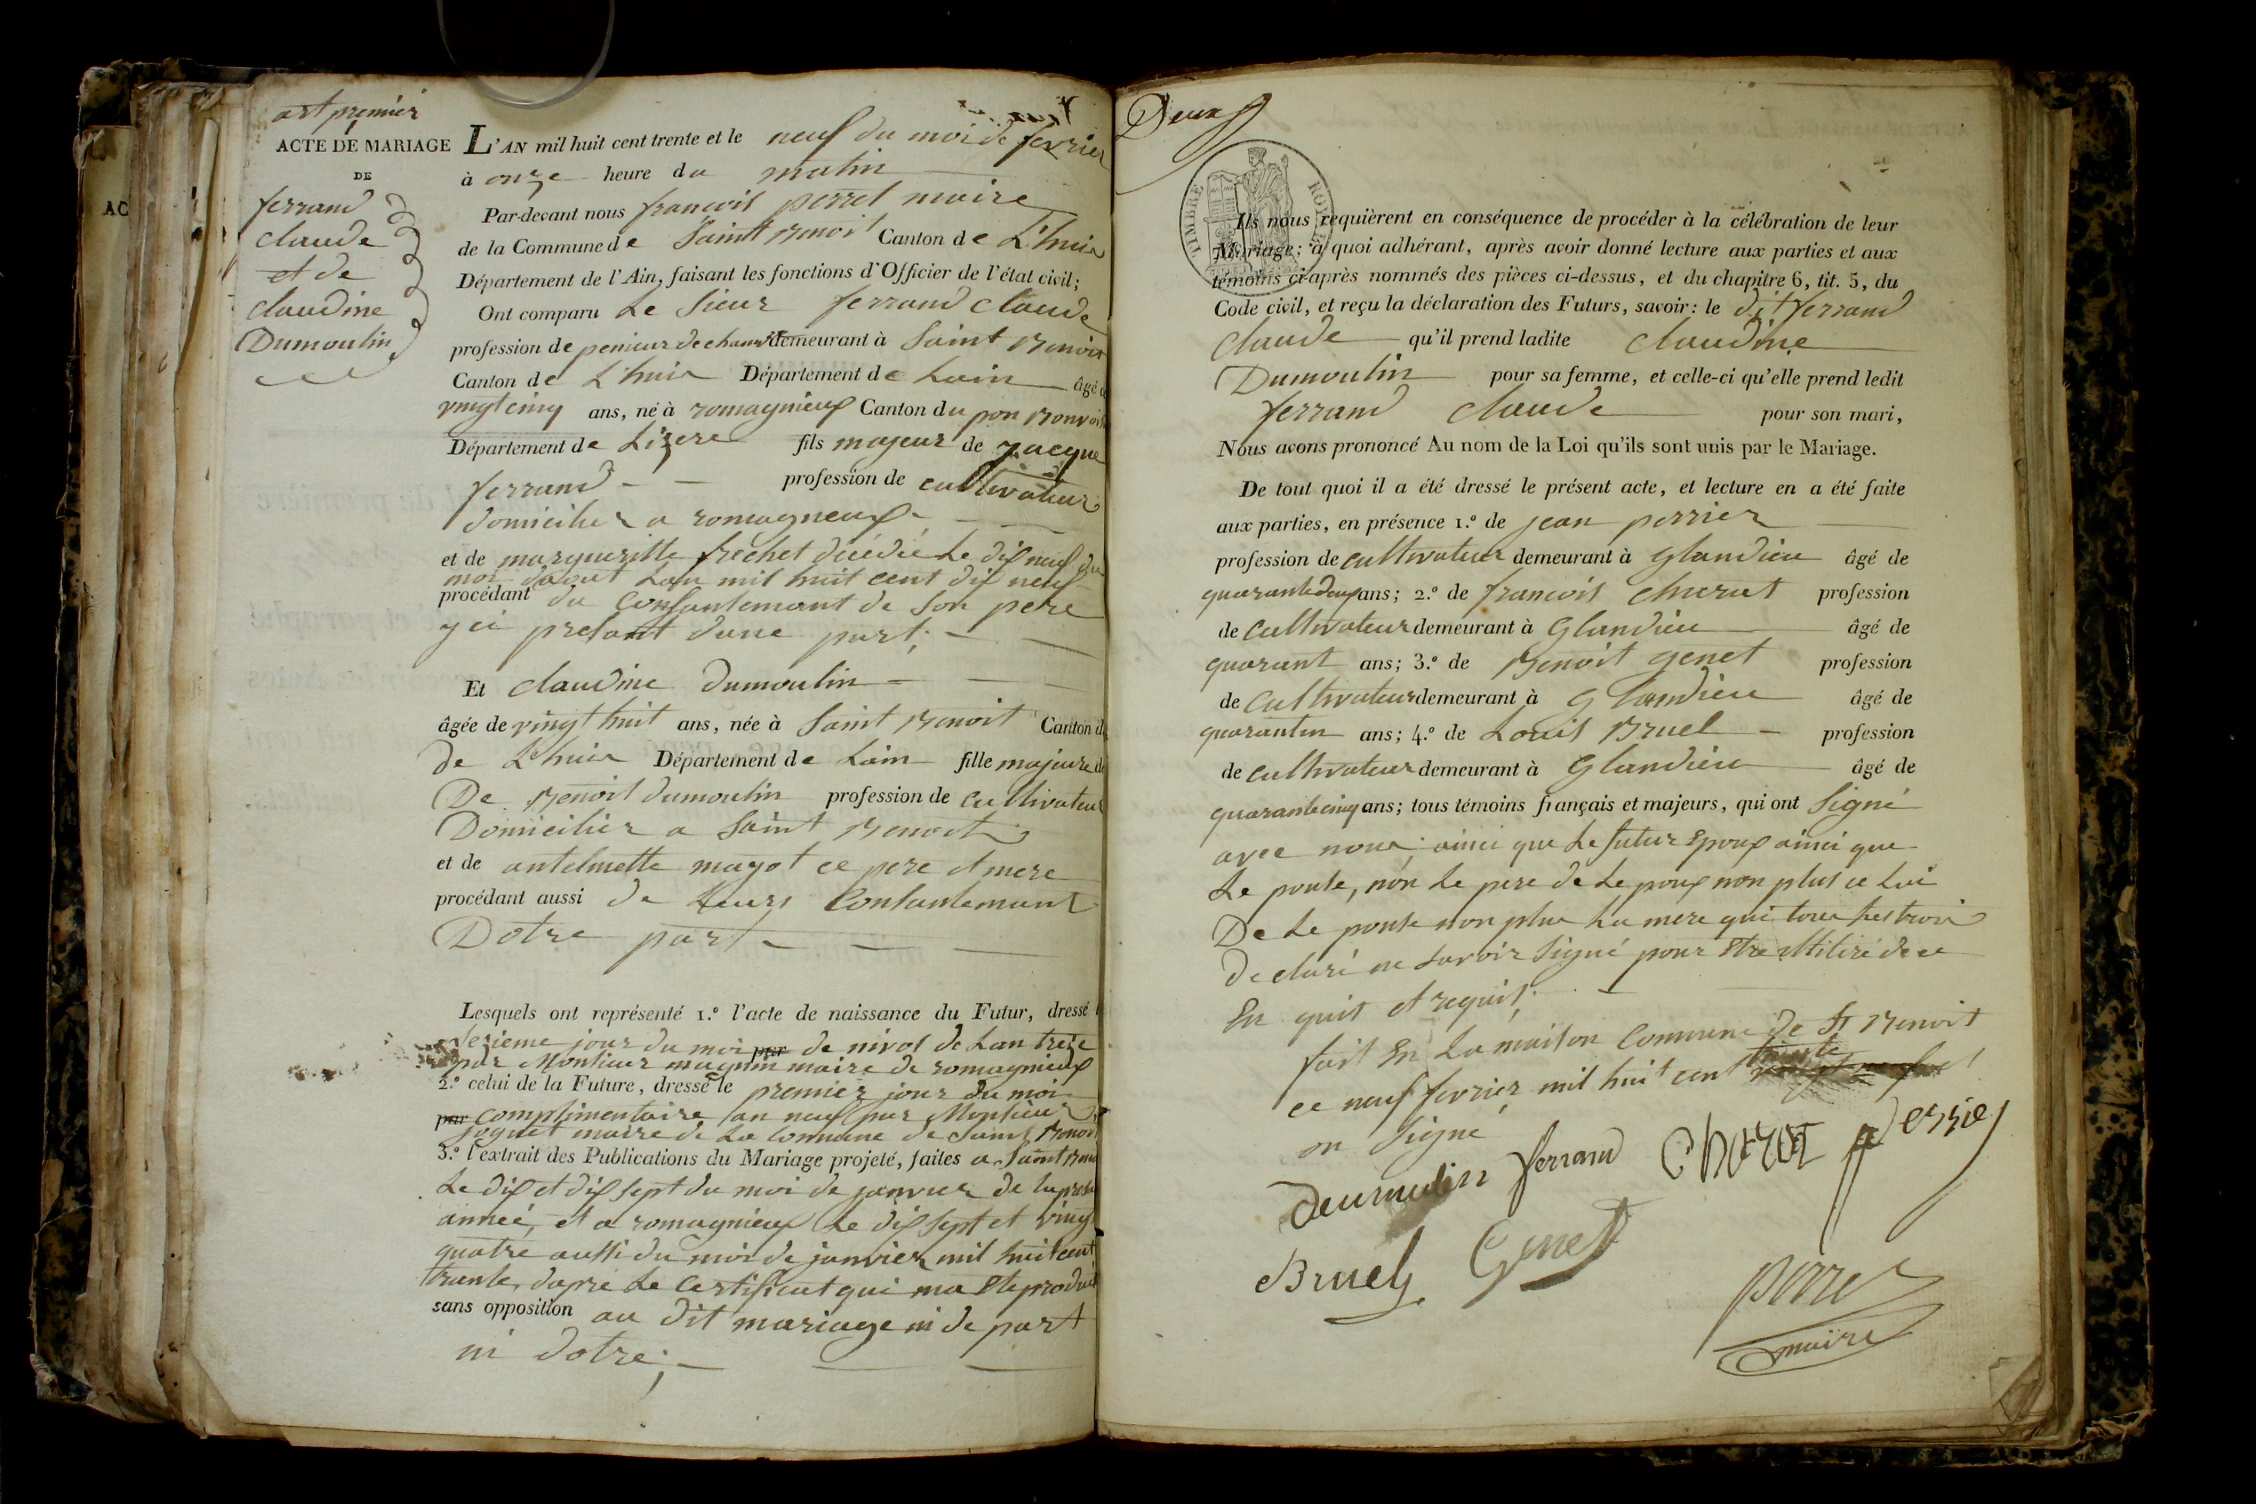 art premier
ACTE DE MARIAGE
DE
ferrand
claude
et de
claudine
Dumoulin
AC
L'AN mil huit cent trente et le neuf du moi de fevrier
à onze heure du matin
Par-devant nous francois perret maire
de la Commune de Saint Benoit Canton de L'huis
Département de l'Ain, faisant les fonctions d'Officier de l'état civil;
Ont comparu Le Sieur ferrand claude
profession de penieur de chanvre demeurant à Saint Benoit
Canton de L'huis Département de Lain âgé de
vingt cinq ans, né à romagnieux Canton du pon Bonvoisin
Département de Lizere fils majeur de Jacque
ferrand profession de cultivateur
domicilier a romagneux
et de margueritte frechet décédié Le dix neuf du
moi daout Lan mil huit cent dix neuf
procédant du Consantemant de Son pere
y ci presant dune part;
Et claudine dumoulin
âgée de vingt huit ans, née à Saint Benoit Canton de
de L'huis Département de Lain fille majeure de
De Benoit dumoulin profession de cultivateur
Domicilier a Saint Benoit
et de antelmette magot ce pere et mere
procédant aussi de Leurs Consantemant
Dotre part
Lesquels ont représenté 1.º l'acte de naissance du Futur, dressé le
sezieme jour du moi par de nivos de Lan treize
par Monsieur magnin maire de romagnieux
2.º celui de la Future, dressé le premier jour du moi
par complimentaire an neuf par Monsieur
joguet maire de La Commune de Saint Benoit
3.º l'extrait des Publications du Mariage projeté, faites a Saint Benoit
Le dix et dix sept du moi de janvier de la presa
année, et a romagnieux Le dix sept et vingt
quatre aussi du moi de janvier mil huit cent
trante, dapre Le certificat qui ma Ete produit
sans opposition au dit mariage ni de part
ni dotre;
Deux
TIMBRE ROYAL
Ils nous requièrent en conséquence de procéder à la célébration de leur
Mariage; à quoi adhérant, après avoir donné lecture aux parties et aux
témoins ci-après nommés des pièces ci-dessus, et du chapitre 6, tit. 5, du
Code civil, et reçu la déclaration des Futurs, savoir: le dit ferrand
claude qu'il prend ladite claudine
Dumoulin pour sa femme, et celle-ci qu'elle prend ledit
ferrand claude pour son mari,
Nous avons prononcé Au nom de la Loi qu'ils sont unis par le Mariage.
De tout quoi il a été dressé le présent acte, et lecture en a été faite
aux parties, en présence 1.º de jean perrier
profession de cultivateur demeurant à Glandieu âgé de
quarante deux ans; 2.º de francois charat profession
de cultivateur demeurant à Glandieu âgé de
quarant ans; 3.º de Benoit genet profession
de cultivateur demeurant à Glandieu âgé de
quarantun ans; 4.º de Louis Bruel profession
de cultivateur demeurant à Glandieu âgé de
quarante cinq ans; tous témoins français et majeurs, qui ont Signé
avec nous ainci que Le futur Epoux ainci que
Le pouse, non Le pere de Le poux non plus ce Lui
De Le pouse non plus La mere qui tous Les trois
declaré ne savoir Signé pour Etre
En quit et requis;
fait En La maison Commune de St Benoit
ce neuf fevrier mil huit cent trante et
on Signé
Deumulin ferrand CharaT perrier
Bruel Genet
perret
maire